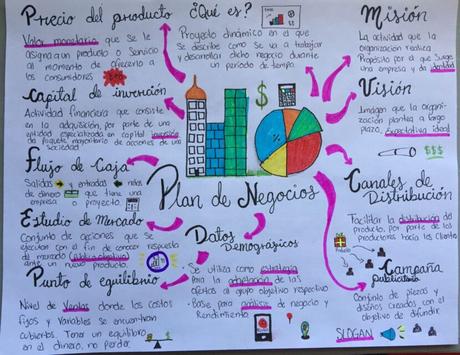 Precio del producto
Valor monetario que se le
asigna a un producto o Servicio
al momento de ofrecerlo a
los consumidores
Capital de inversión
Actividad financiera que consiste
en la adquisición, por parte de una
entidad especializada en capital inversión
de paquete mayoritario de acciones de una
Sociedad
Flujo de Caja
Salidas y entradas netas
de dinero que tiene una
empresa proyecto.
Estudio de Mercado
Conjunto de acciones que se
ejecutan con el fin de conocer respuesta
del mercado (público objetivo)
ante un nuevo producto.
Punto de equilibrio
Nivel de Ventas donde los costos
fijos y Variables se encuentran
cubiertos. Tener un equilibrio
en el dinero, no perder.
¿Qué es?
Proyecto dinámico en el que
Se describe como se va a trabajar
y desarrollar dicho negocio durante
un periodo de tiempo.
$
%
Plan de Negocios
Datos
Demográficos
• Se utiliza como estrategia
para la adaptación de las
ofertas al grupo objetivo respectivo
• Base para análisis de negocio y
Rendimiento
Misión
La actividad que la
organización realiza
Propósito por el que Surge
empresa y da sentido
Visión
Imagen que la organi-
zación plantea a largo
plazo, Expectativa ideal
$$$
Canales de
Distribución
Facilitar la distribución del
producto, por parte de los
productores hacia los Clientes
Producto
Campaña
publicitaria
Conjunto de piezas y
diseños creados con el
objetivo de difundir
SLOGAN